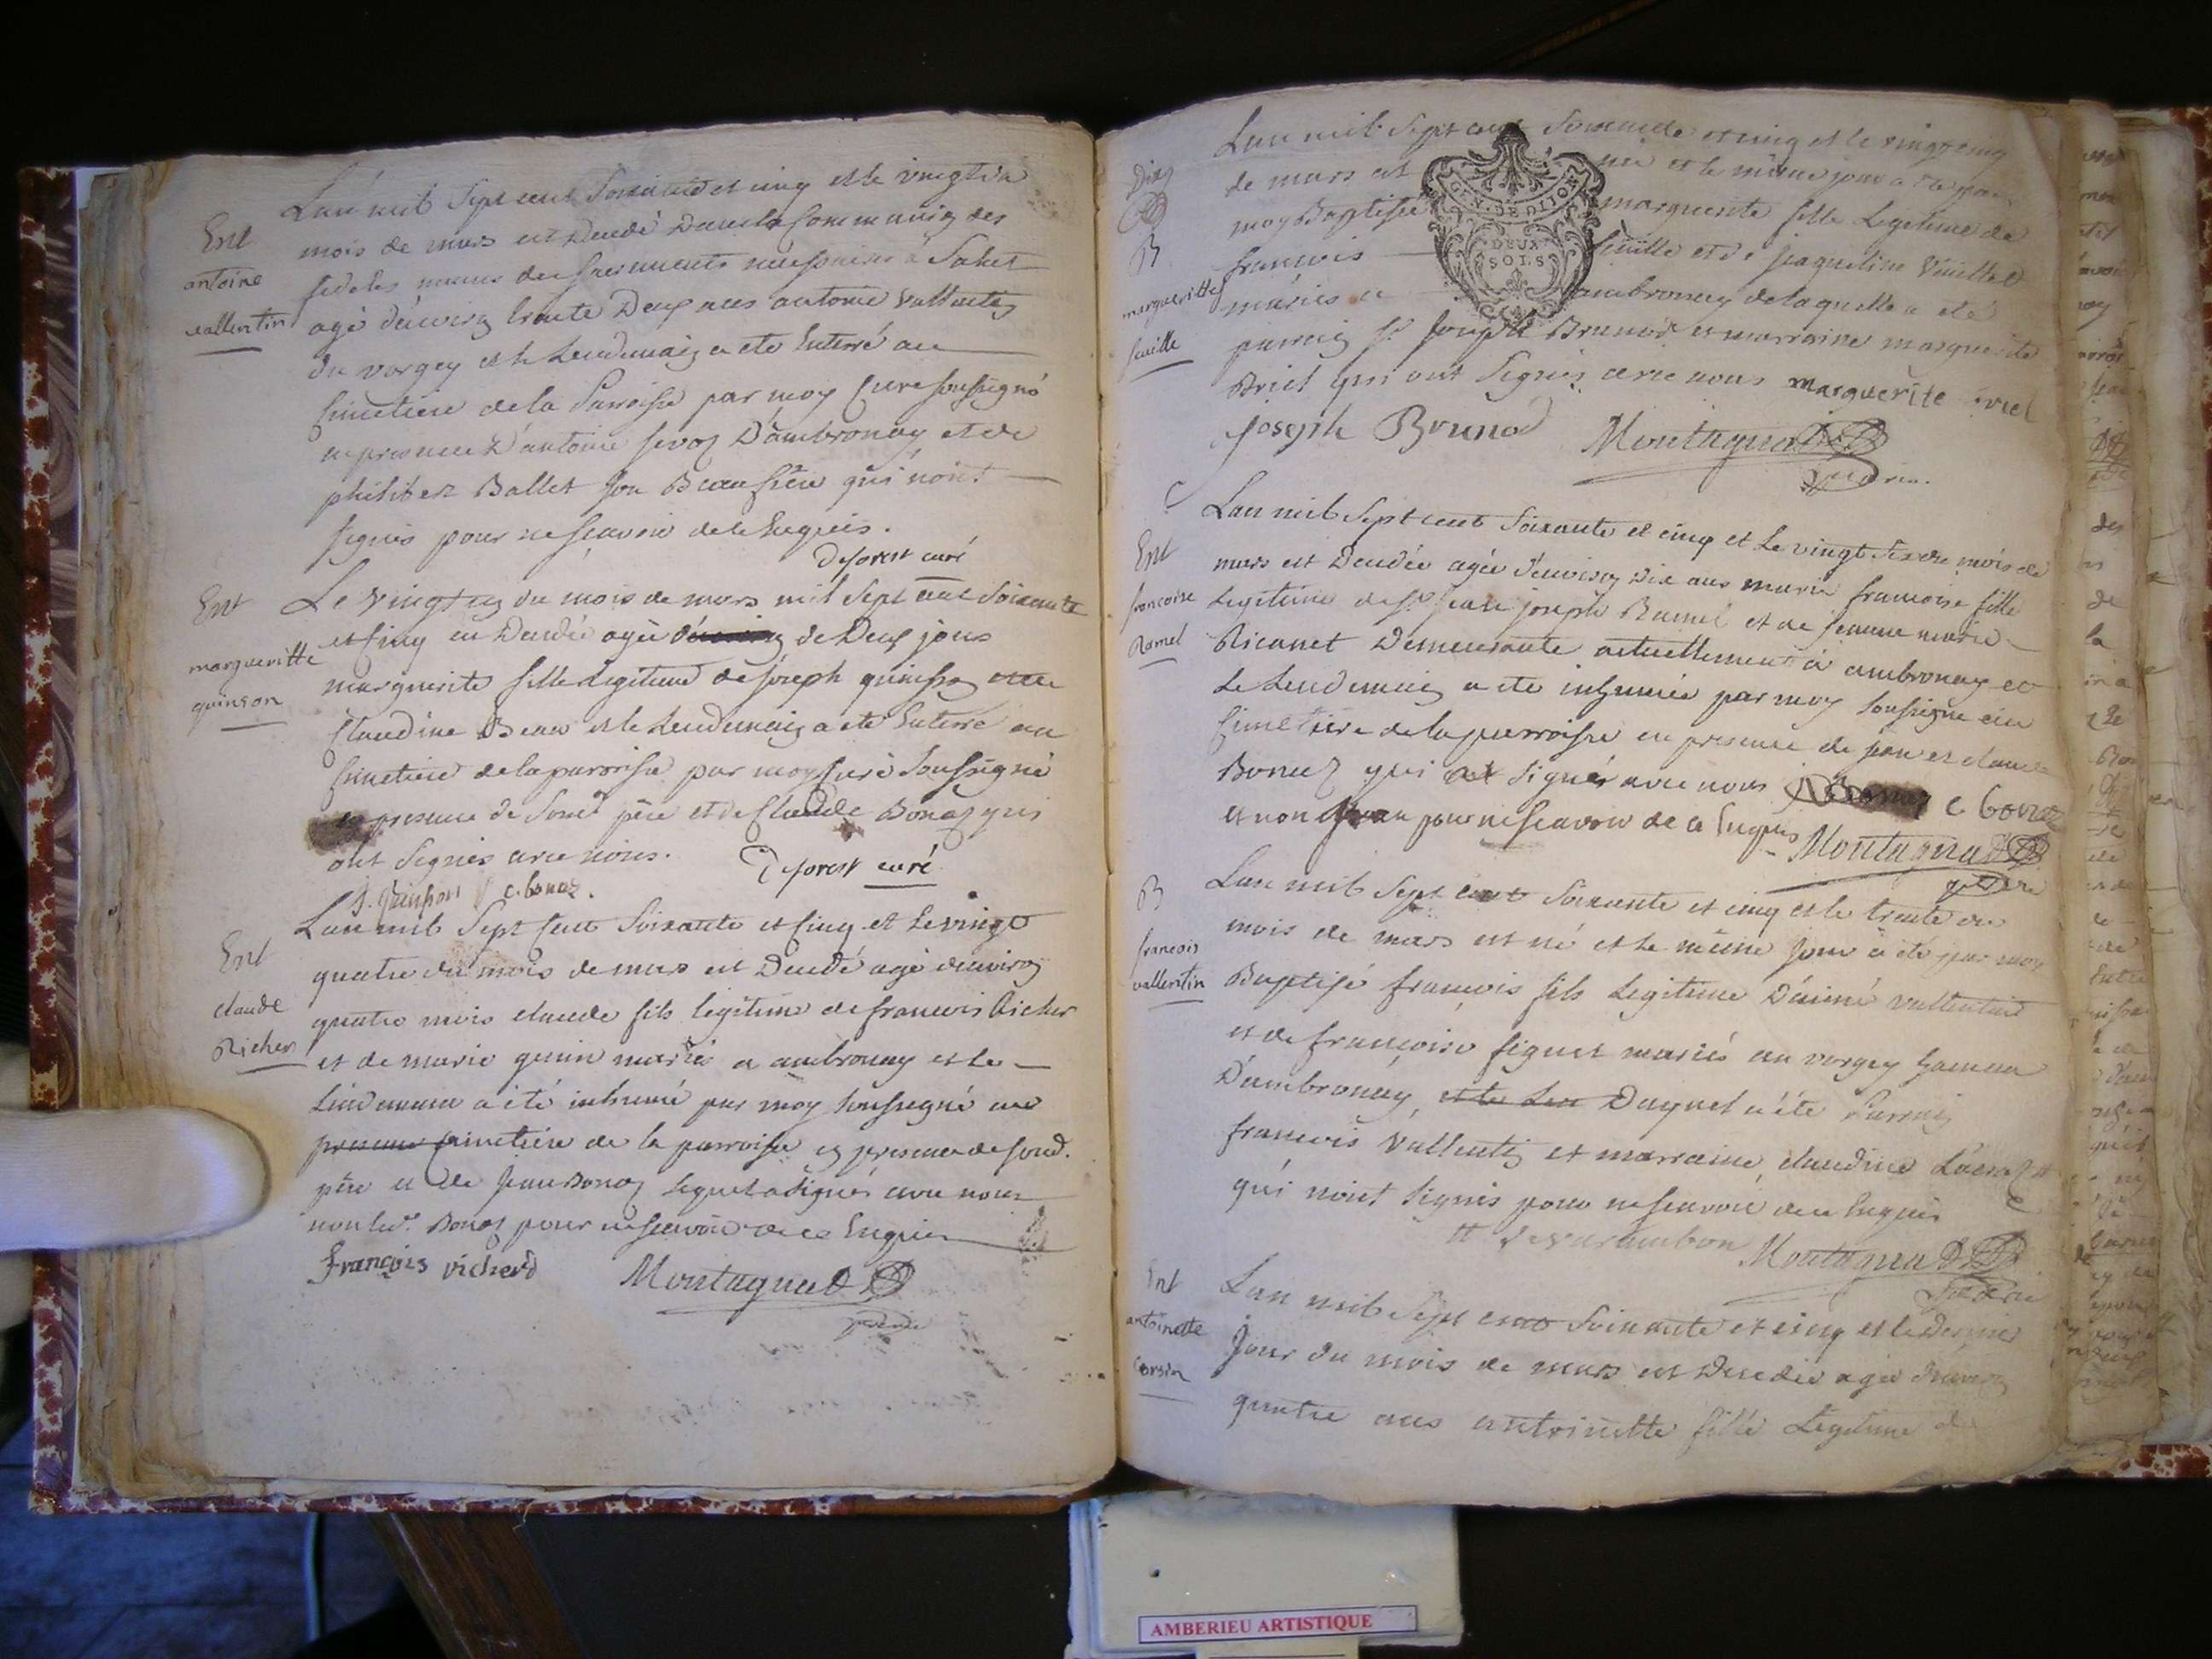 Ent
antoine
vallentin
L'an mil Sept cent Soixante et cinq et le vingt du
mois de mars est Decedé Dans la Communion des
fideles munis des sacrements necessaires à Salut
agé d'environ trente Deux ans antoine Vallentin
du vorgey et le Lendemain a eté Enterré au
Cimetiere de la Parroisse par moy Curé soussigné
en presence d'antoine D'ambronay et de
philibert Ballet son Beaufrere qui n'ont
signés pour ne sçavoir de ce Enquis.
Deforest curé
Ent
margueritte
quinson
Le vingt du mois de mars mil Sept cent Soixante
et cinq est Decedée agée de Deux jours
marguerite fille Legitime de joseph quinson et de
Claudine Beau et le Lendemain a eté Enterré au
Cimetiere de la parroisse par moy Curé Soussigné
en presence de Soud père et de Claude Bonaz qui
ont Signés avec nous.
Deforest curé
J. quinson c. bonaz.
Ent
claude
Richer
L'an mil Sept Cent Soixante et Cinq et Le vingt
quatre du mois de mars est Decedé agé d'environ
quatre mois claude fils legitime de francois Richer
et de marie genin mariés a ambronay et le
Lendemain a été inhumé par moy Soussigné au
presence Cimetiere de la parroisse en presence de soud.
père et de Jean Bonaz Lequel a signés avec nous
non led. Bonaz pour ne sçavoir de ce Enquis
françois richerd Montagnat
vicaire
GEN. DE DIJON
DEUX
SOLS
B
margueritte
feuille
L'an mil Sept cent Soixante et cinq et le vingt cinq
de mars est née et le même jour a eté par
moy Baptisée marguerite fille Legitime de
francois feuille et de jaqueline
mariés a ambronay de laquelle a eté
parrein Sr. Joseph Brunod et marraine marguerite
Briel qui ont Signés avec nous marguerite briel
Joseph Brunod Montagnat
vicaire.
Ent
francoise
Ramel
L'an mil Sept cent Soixante et cinq et Le vingt Six du mois de
mars est Decedée agée d'environ Dix ans marie francoise fille
Legitime de Sr. jean joseph Ramel et de jeanne marie
Ricanet Demeurante actuellement à ambronay et
Le Lendemain a eté inhumée par moy soussigné au
Cimetiere de la parroisse en presence de jean et claude
Bonaz qui ont signés avec nous c bonaz
et non Jean pour ne sçavoir de ce Enquis Montagnat
vicaire
B
francois
vallentin
L'an mil Sept cent Soixante et cinq et le trente du
mois de mars est né et le même jour a été par moy
Baptisé francois fils Legitime D'aimé vallentin
et de françoise figuet mariés au vorgey hameau
D'ambronay, et le Len Duquel a été Parrein
francois Vallentin et marraine claudine
qui n'ont signés pour ne sçavoir de ce Enquis
# de varambon Montagnat
vicaire
Ent
antoinette
Corsin
L'an mil Sept cent Soixante et cinq et le Dernier
Jour du mois de mars est Decedée agée d'environ
quatre ans antoinette fille Legitime de
AMBERIEU ARTISTIQUE